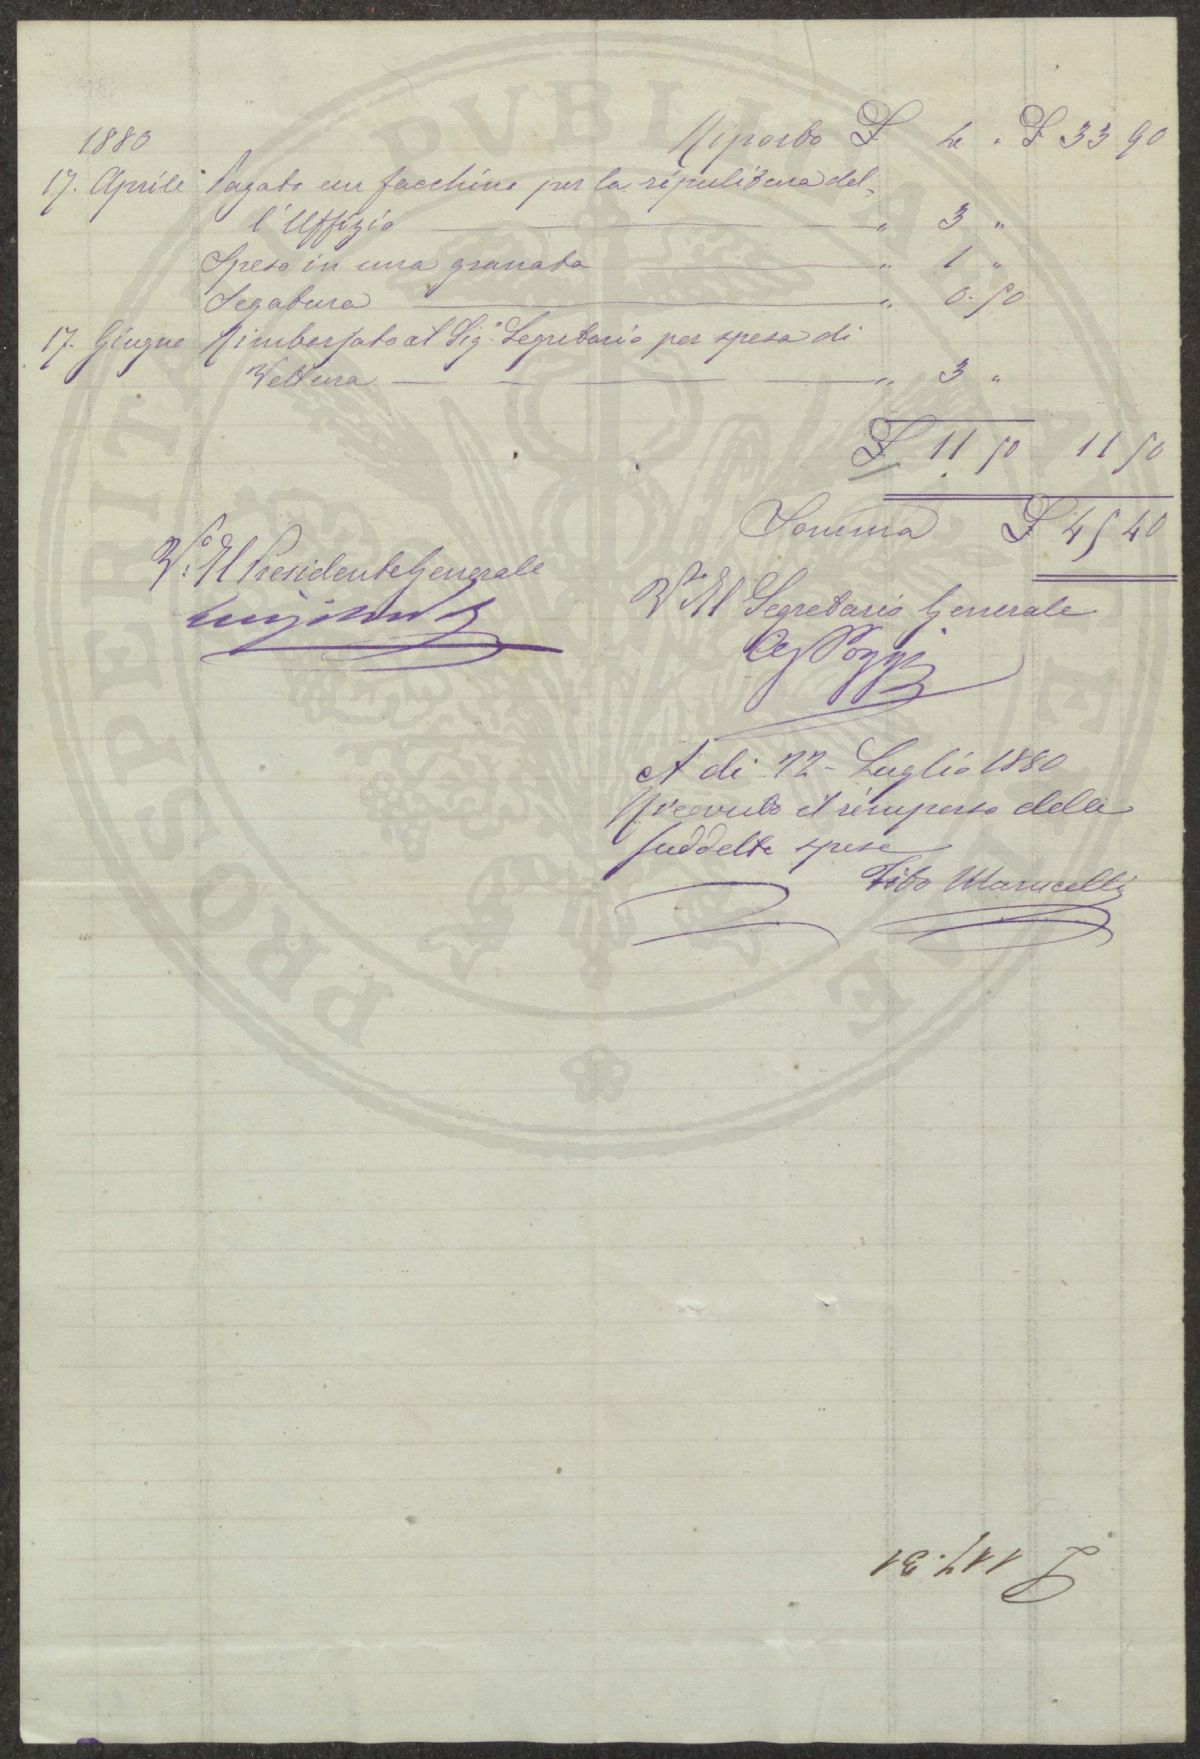 1880 Riporto £ 4 " £ 33 90
17. Aprile Pagato un facchino per la ripulitura del-
l'Uffizio " 3 "
Speso in una granata " 1 "
Segatura " 0.50
17. Giugno Rimborsato al Sig.r Segretario per spesa di
Vettura " 3 "
£ 11 50 11 50
Somma £ 45 40
V.o Il Presidente Generale
V.to Il Segretario Generale
Poggi
A di 22 - Luglio 1880
Ricevuto il rimporto delle
suddette spese
Tito Marucelli
£ 117.31
PROSPERITA PUBLICA